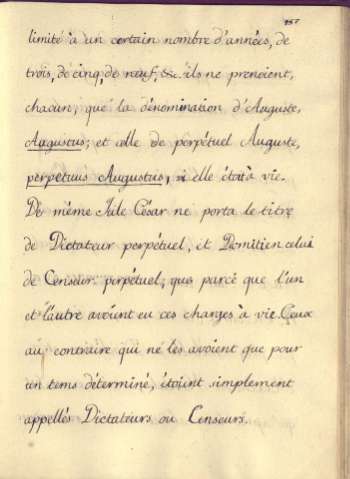 157
limité à un certain nombre d'années, de
trois, de cinq, de neuf, &c. ils ne prenoient,
chacun, que la dénomination d'Auguste,
Augustus; et celle de perpétuel Auguste,
perpetuus Augustus, si elle étoit à vie.
De même Jule César ne porta le titre
de Dictateur perpétuel, et Domitien celui
de Censeur perpétuel, que parce que l'un
et l'autre avoient eu ces charges à vie. Ceux
au contraire qui ne les avoient que pour
un tems déterminé, étoient simplement
appellés Dictateurs ou Censeurs.